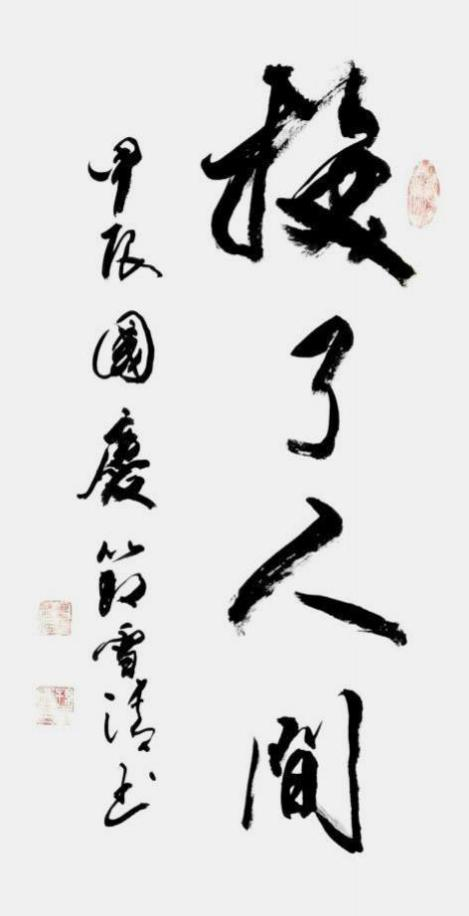 換了人間
甲辰國慶節雪清书